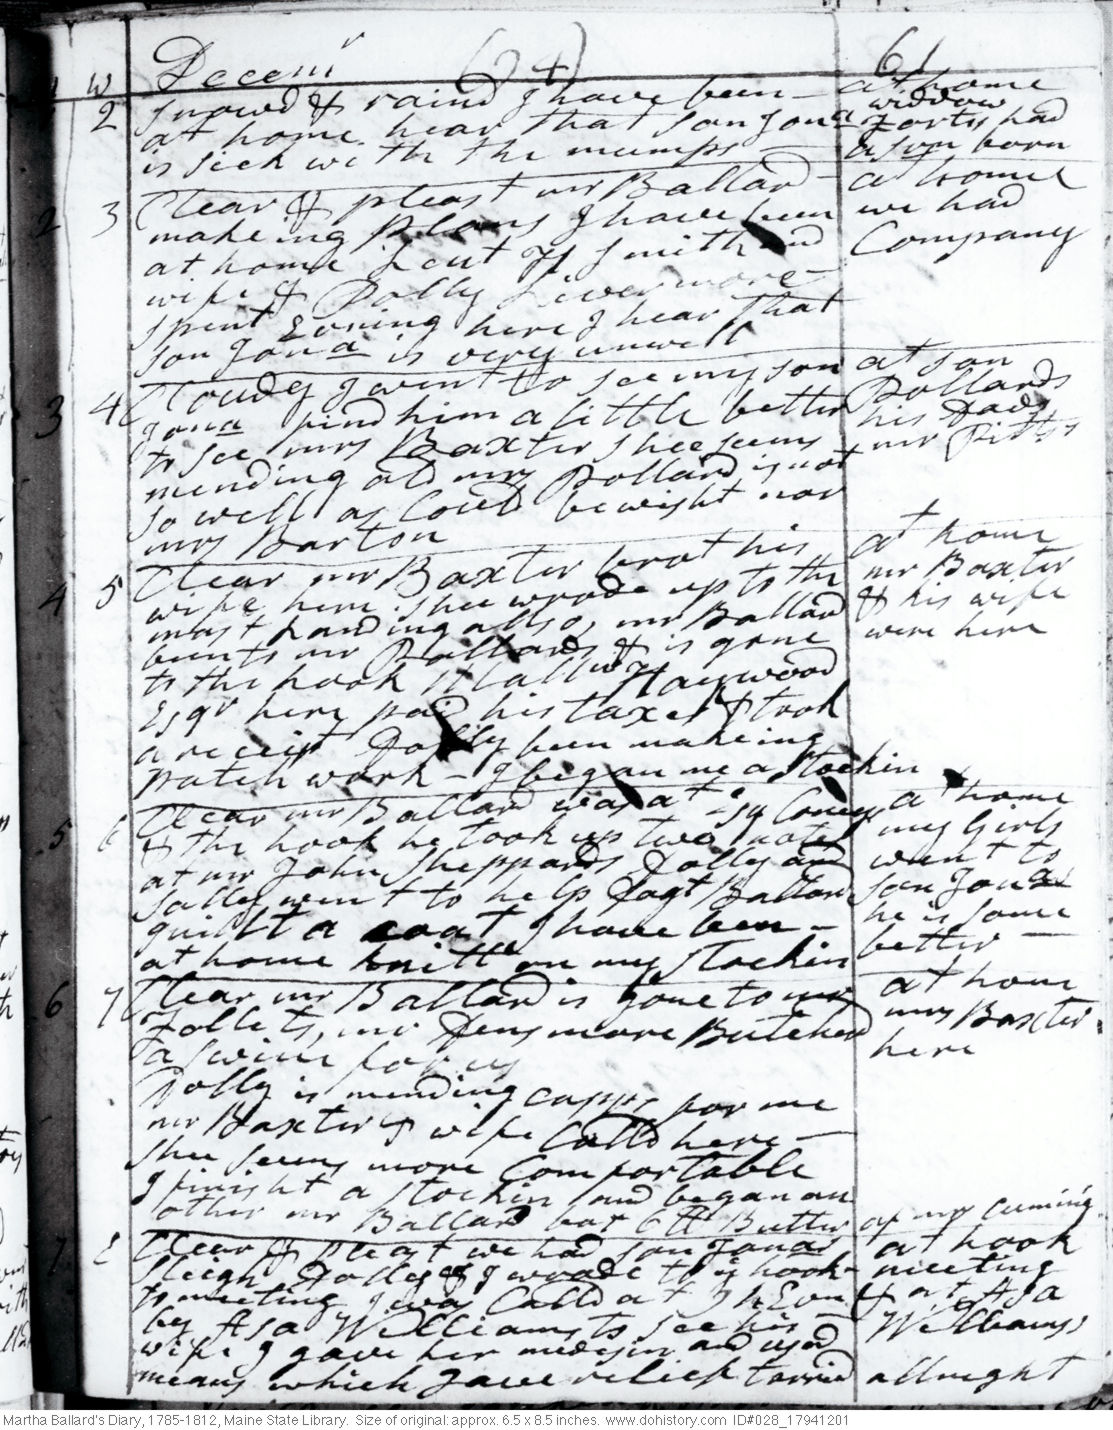 Decemr (24) 61
1 w
2 snowd & raind I have been — at home
at home hear that son Jona widdow
is sick with the mumps — Fortis had
a son born
2 3 Clear & pleast mr Ballard — at home
makeing Plans I have been we had
at home Leut Jf Smith and Company
wife & Polly Livermore —
spent Evning here I hear that
son Jona is very unwell
3 4 Cloudy I went to see my son at son
Jona find him a little better Pollards
to see mrs Baxter shee seems his Dads
mending old mrs Pollard is not mr Pitts
so well as Could be wisht nor
mrs Barton
4 5 Clear mr Baxter brot his at home
wife here. shee wrode up to the mr Baxter
mast handing allso, mr Ballard & his wife
went to mr Pollards & is gone were here
to the hook
Haywood
Esqr here paid his taxes & took
a receipt Dolly been makeing
patch work — I began me a Stockin
5 6 Clear mr Ballard was at Esq Coneys at home
& the hook he took up two notes my Girls
at mr John Sheppards Dolly and went to
Sally went to help Dagt Ballard son Jonas
quillt a coat I have been — he is some
at home knitt on my Stockin better —
6 7 Clear mr Ballard is gone to mr at home
Follets, mr Densmore Butcherd mrs Baxter
a swine for us here
Polly is mending capps for me
mr Baxter & wife Calld here —
shee seems more Comfortable
I finisht a stockin and began an
other mr Ballard bot 6 lb Butter of mr Cuming
7 8 Clear & pleast we had son Jonas at hook
sleigh Dolly & I wrode to ye hook meeting
to meeting. I was Calld at 7 h Evn & at Asa
by Asa Williams to see his — Williams's
wife I gave her medesin and used
means which gave relief tarried allnight